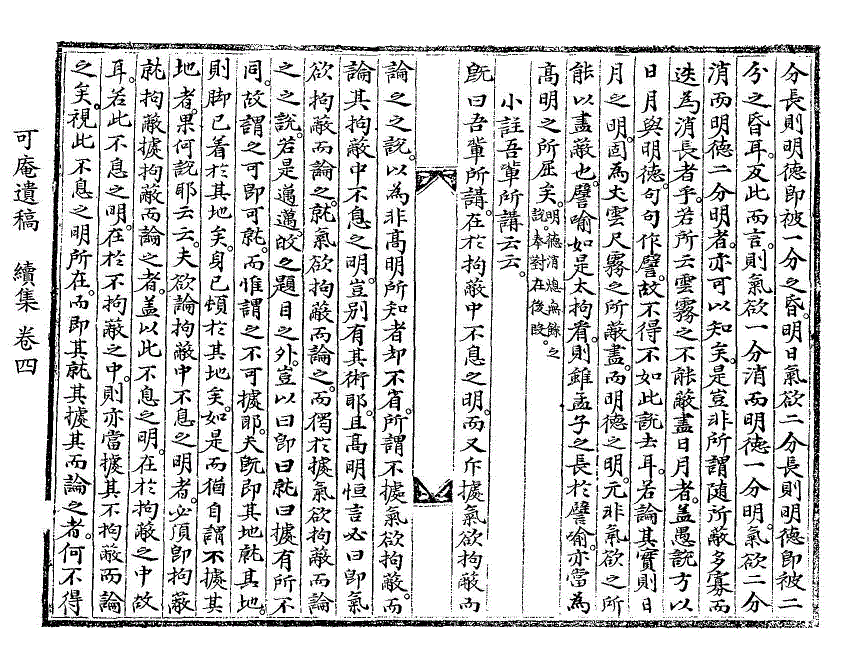 分長則明德卽被一分之昏。明日氣欲二分長則明德卽被二
分之昏耳。反此而言。則氣欲一分消而明德一分明。氣欲二分
消而明德二分明者。亦可以知矣。是豈非所謂隨所蔽多寡而
迭為消長者乎。若所云雲霧之不能蔽盡日月者。盖愚說方以
日月與明德。句句作譬。故不得不如此說去耳。若論其實則日
月之明。固為丈雲尺霧之所蔽盡。而明德之明。元非氣欲之所
能以盡蔽也。譬喻如是太拘看。則雖孟子之長於譬喻。亦當為
高明之所屈矣。明德消熄無餘之說。奉對在後段。
小註吾輩所講云云。
旣曰吾輩所講。在於拘蔽中不息之明。而又斥據氣欲拘蔽而
論之之說。以為非高明所知者却不省。所謂不據氣欲拘蔽。而
論其拘蔽中不息之明。豈别有其術耶。且高明恒言必曰卽氣
欲拘蔽而論之。就氣欲拘蔽而論之。而獨於據氣欲拘蔽而論
之之說。若是邁邁。皎之題目之外。豈以曰卽曰就曰據有所不
同。故謂之可卽可就。而惟謂之不可據耶。夫旣卽其地就其地。
則脚已着於其地矣。身已頓於其地矣。如是而猶自謂不據其
地者。果何說耶云云。夫欲論拘蔽中不息之明者。必須卽拘蔽
就拘蔽據拘蔽而論之者。盖以此不息之明。在於拘蔽之中故
耳。若此不息之明。在於不拘蔽之中。則亦當據其不拘蔽而論
之矣。視此不息之明所在。而卽其就其據其而論之者。何不得
可庵遺稿 續集 卷四